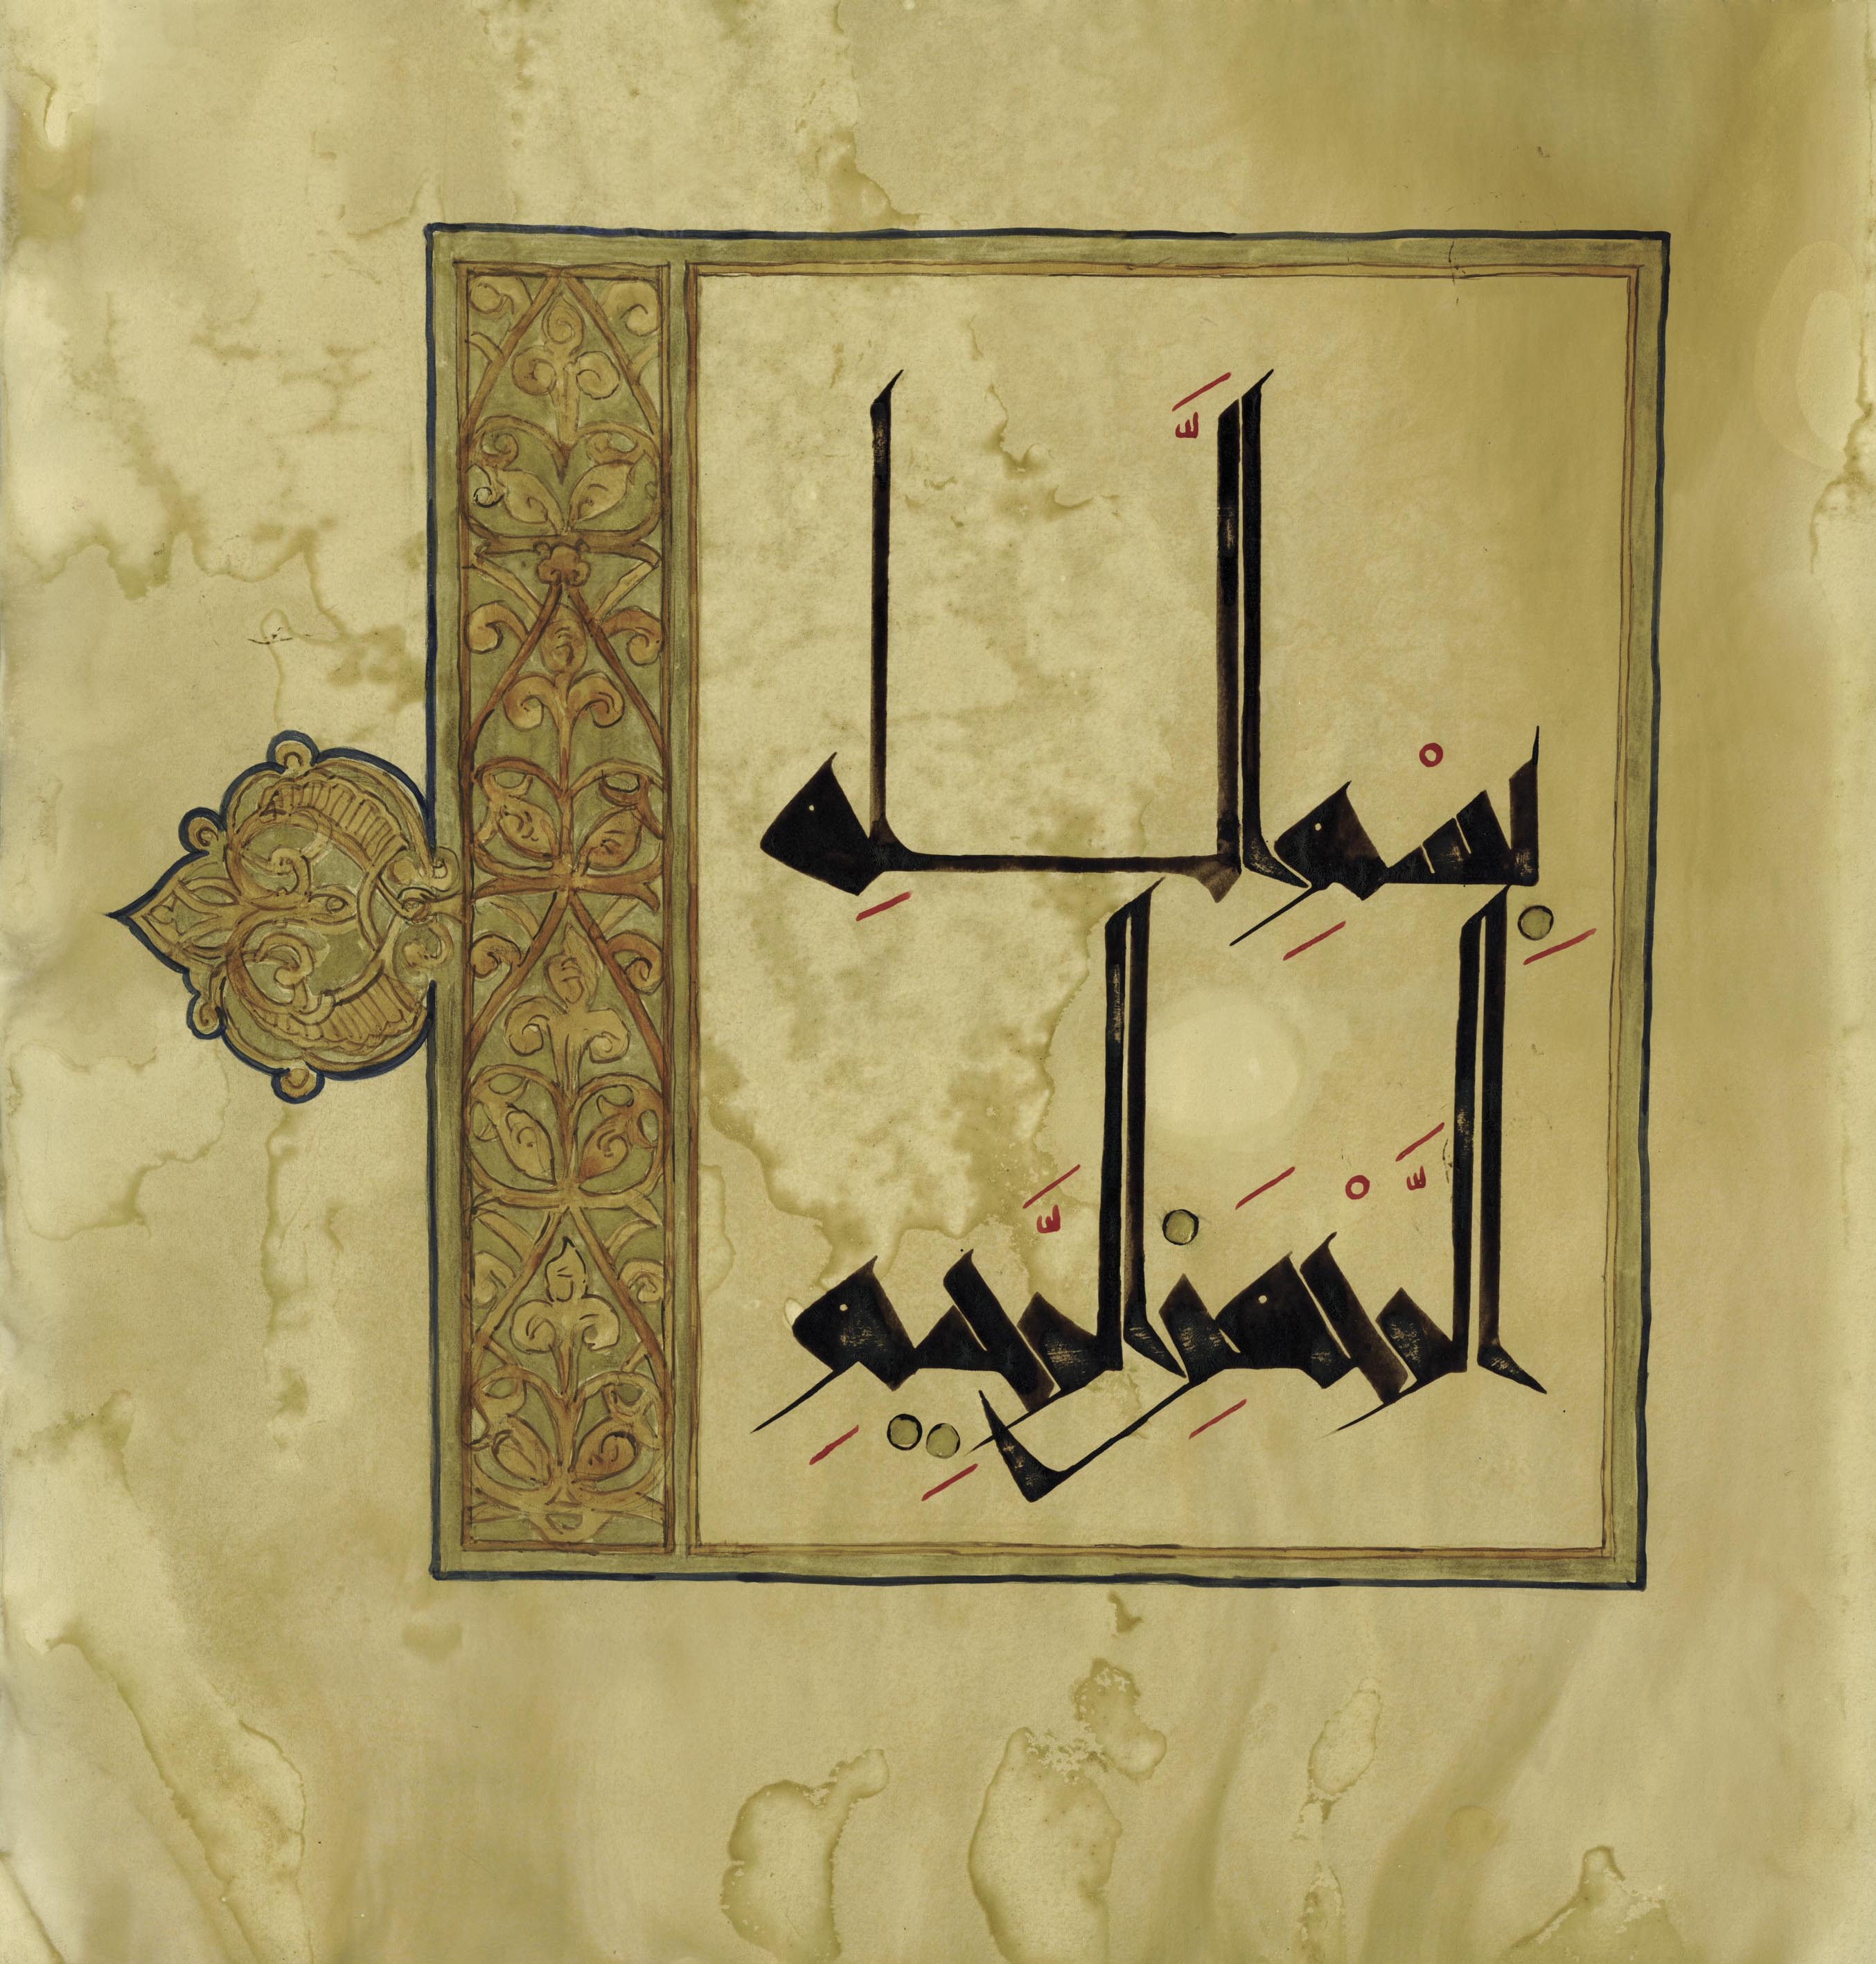 بِسْمِ اللَّهِ
الرَّحْمَنِ الرَّحِيمِ